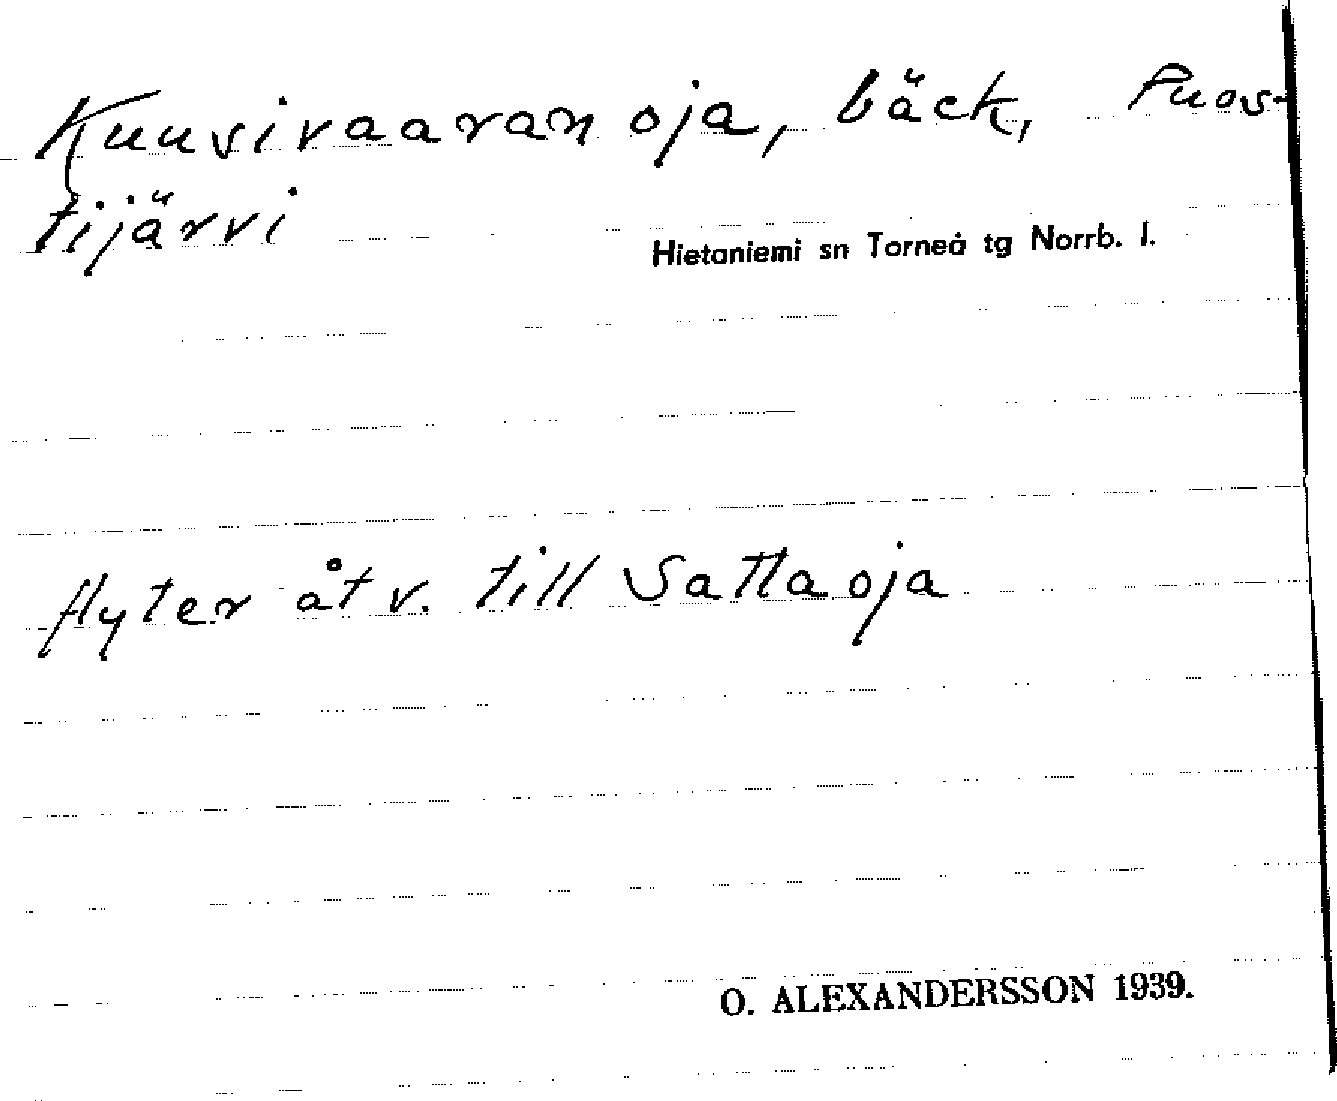 Kuusivaaran oja, bäck, Puos-
tijärvi
Hietaniemi sn Torneå tg Norrb. l.
flyter åt v. till Sattaoja
O. ALEXANDERSSON 1939.